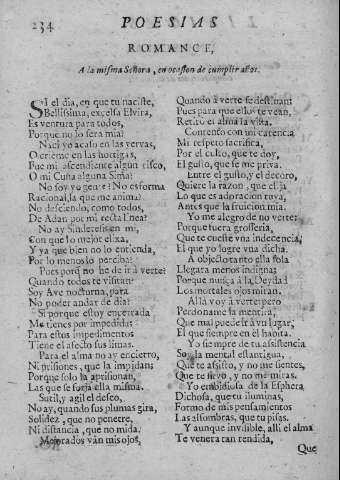 234
POESIAS
ROMANCE,
A la misma Señora, en ocasion de cumplir años.
SI el dia, en que tu naciste,
Bellissima, excelsa Elvira,
Es ventura para todos,
Porque no lo será mia?
Nací yo acaso en las yervas,
O crieme en las hortigas,
Fue mi ascendiente algun risco,
O mi Cuna alguna Sima?
No soy yo gente? No es forma
Racional, la que me anima?
No desciendo, como todos,
De Adan por mi recta linea?
No ay sinderesis en mi,
Con que lo mejor elixa,
Y ya que bien no lo entienda,
Por lo menos lo perciba?
Pues porq̃ no he de ir à verte?
Quando todos te visitan?
Soy Ave nocturna, para
No poder andar de dia?
Si porque estoy encerrada
Me tienes por impedida:
Para estos impedimentos
Tiene el afecto sus limas.
Para el alma no ay encierro,
Ni prisiones, que la impidan;
Porque solo la aprisionan,
Las que se forja ella misma.
Sutil, y agil el deseo,
No ay, quando sus plumas gira,
Solidez, que no penetre,
Ni distancia, que no mida.
Mejorados ván mis ojos,
Quando à verte se destinan;
Pues para que ellos te vean,
Retiro el alma la vista.
Contento con mi carencia
Mi respeto sacrifica,
Por el culto, que te doy,
El gusto, que se me priva.
Entre el gusto, y el decoro,
Quiere la razon, que elija
Lo que es adoracion tuya,
Antes que la fruicion mia.
Yo me alegro de no verte;
Porque fuera grosseria,
Que te cueste vna indecencia,
El que yo logre vna dicha.
A objecto tanto ella sola
Llegará menos indigna;
Porque nunca à la Deydad
Los mortales ojos miran.
Allá voy à verte; pero
Perdoname la mentira;
Que mal puede ir à vn lugar,
El que siempre en él habita.
Yo siempre de tu assistencia
Soy la mental estantigua,
Que te assisto, y no me sientes,
Que te sirvo, y no me miras.
Yo embidiosa de la Esphera
Dichosa, que tu iluminas,
Formo de mis pensamientos
Las alfombras, que tu pisas.
Y aunque invisible, allí el alma
Te venera tan rendida,
Que